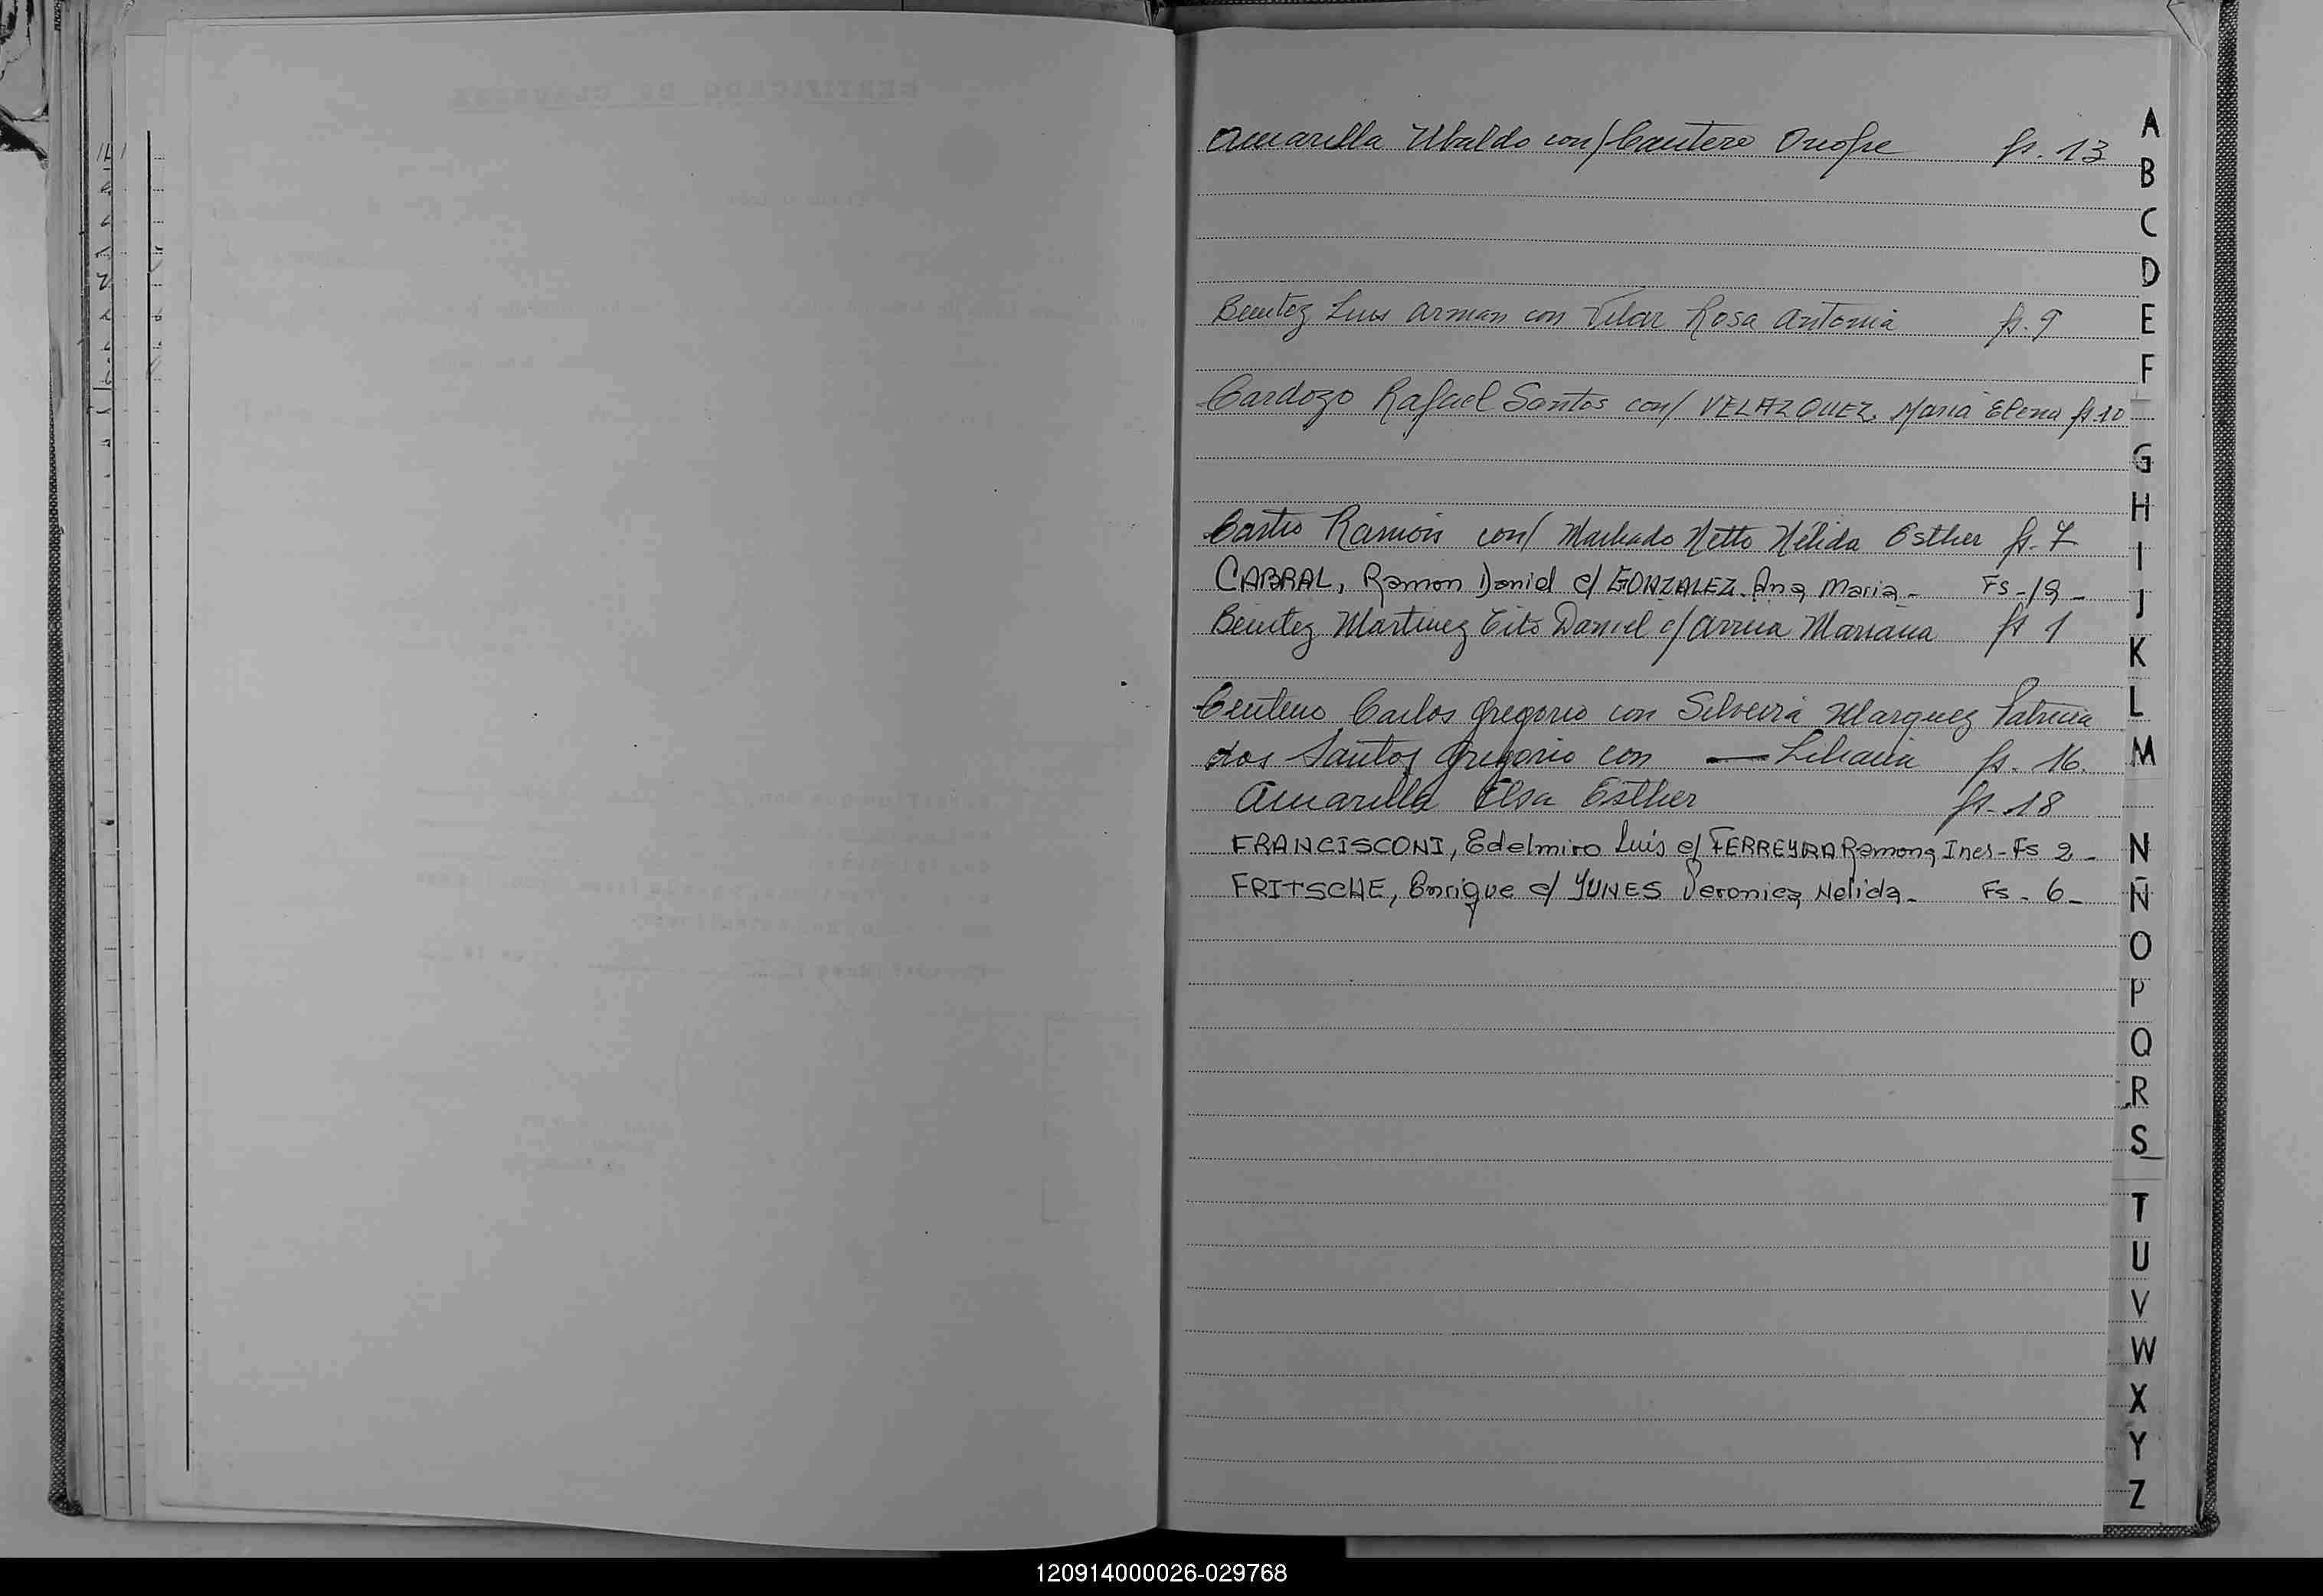 CERTIFICADO DE CLAUSURA
Amarilla Ubaldo con/ Cantero Onofre fs. 13
Benitez Luis Arman con Vilar Rosa Antonia fs. 9
Cardozo Rafael Santos con/ VELAZQUEZ. Maria Elena fs. 10
Castro Ramón con/ Machado Netto Nélida Esther fs. 7
CABRAL, Ramon Daniel c/ GONZALEZ. Ana Maria - Fs - 19 -
Benitez Martinez Tito Daniel c/ Mariana fs 1
Centeno Carlos Gregorio con Silveira Marquez Patricia
dos Santos Gregorio con — Liliana fs. 16.
Amarilla Elsa Esther fs - 18
FRANCISCONI, Edelmiro Luis c/ FERREYRA Ramona Ines - Fs 2 -
FRITSCHE, Enrique c/ YUNES Veronica Nelida - Fs - 6 -
A
B
C
D
E
F
G
H
I
J
K
L
M
N
Ñ
O
P
Q
R
S
T
U
V
W
X
Y
Z
120914000026-029768